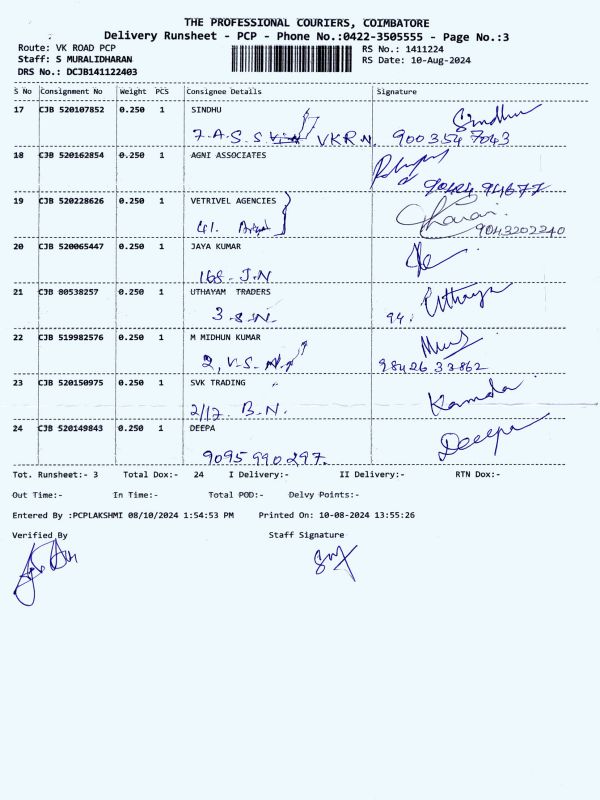 THE PROFESSIONAL COURIERS, COIMBATORE
Delivery Runsheet - PCP - Phone No.:0422-3505555 - Page No.:3
Route: VK ROAD PCP RS No.: 1411224
Staff: S MURALIDHARAN RS Date: 10-Aug-2024
DRS No.: DCJB141122403
S No Consignment No Weight PCS Consignee Details Signature
17 CJB 520107852 0.250 1 SINDHU Sindhu
7-A.S.S VKRN. 9003547043
18 CJB 520162854 0.250 1 AGNI ASSOCIATES
90424 94677
19 CJB 520228626 0.250 1 VETRIVEL AGENCIES
41. 9043202240
20 CJB 520065447 0.250 1 JAYA KUMAR
168- J.N
21 CJB 80538257 0.250 1 UTHAYAM TRADERS Uthaya
3-S.N. 94.
22 CJB 519982576 0.250 1 M MIDHUN KUMAR
2, V.S. 98426 33862
23 CJB 520150975 0.250 1 SVK TRADING Kamala
2/17. B.N.
24 CJB 520149843 0.250 1 DEEPA Deepa
9095 990297.
Tot. Runsheet:- 3 Total Dox:- 24 I Delivery:- II Delivery:- RTN Dox:-
Out Time:- In Time:- Total POD:- Delvy Points:-
Entered By :PCPLAKSHMI 08/10/2024 1:54:53 PM Printed On: 10-08-2024 13:55:26
Verified By Staff Signature